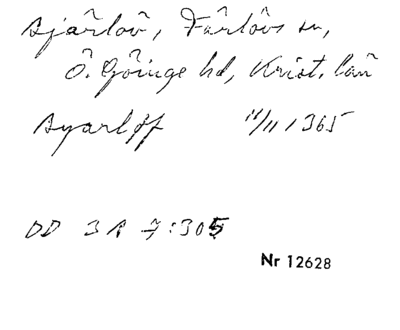 Ajärlöv, Färlövs sn,
Ö. Göinge hd, Krist. län
Ayarløff 11/11 1365
DD 3 R 7:305
Nr 12628